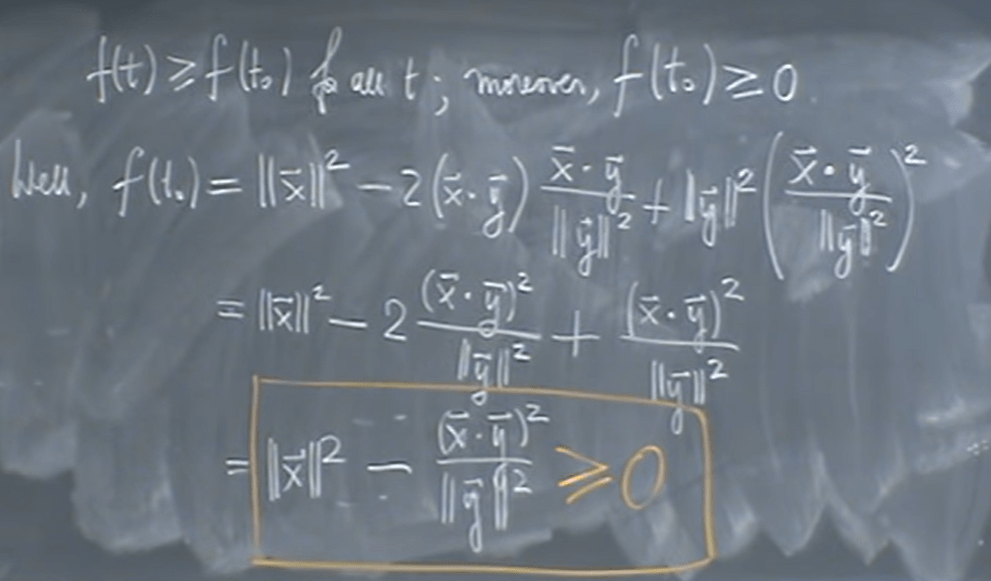 f(t) ≥ f(t₀) for all t; moreover, f(t₀) ≥ 0.
Well, f(t₀) = ‖x⃗‖² − 2(x⃗·y⃗) (x⃗·y⃗)/‖y⃗‖² + ‖y⃗‖² ((x⃗·y⃗)/‖y⃗‖²)²
= ‖x⃗‖² − 2 (x⃗·y⃗)²/‖y⃗‖² + (x⃗·y⃗)²/‖y⃗‖²
= ‖x⃗‖² − (x⃗·y⃗)²/‖y⃗‖² ≥ 0